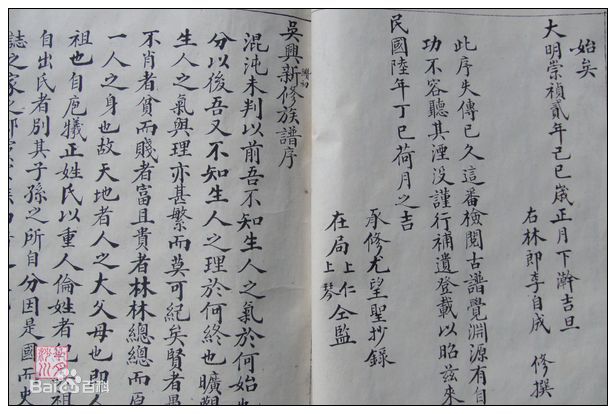 始矣
大明崇禎貳年己巳歲正月下澣吉旦
右林郎李自成 修撰
此序失傳已久這番檢閱古譜覺淵源有自
功不容聽其湮没謹行補遺登載以昭兹來
民國陸年丁巳荷月之吉
承修尤望聖抄錄
在局上仁仝監
上琴
吳興新修族譜序
混沌未判以前吾不知生人之氣於何始
分以後吾又不知生人之理於何終也曠觀
生人之氣與理亦甚繁而莫可紀矣賢者
不肖者貧而賤者富且貴者林林總總而原
一人之身也故天地者人之大父母也即人
祖也自庖犧正姓氏以重人倫姓者
自出氏者別其子孫之所自分因是國而史
誌之家之
Bai百科